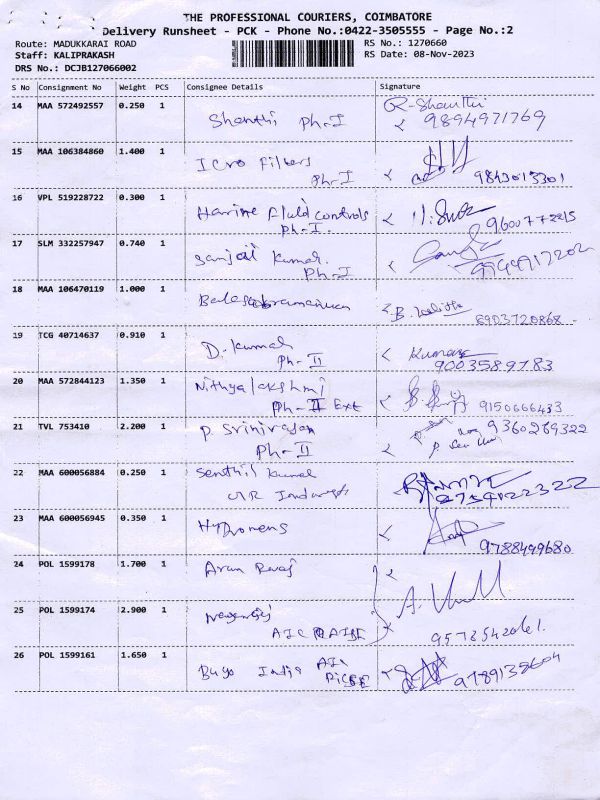 THE PROFESSIONAL COURIERS, COIMBATORE
Delivery Runsheet - PCK - Phone No.:0422-3505555 - Page No.:2
Route: MADUKKARAI ROAD RS No.: 1270660
Staff: KALIPRAKASH RS Date: 08-Nov-2023
DRS No.: DCJB127066002
S No Consignment No Weight PCS Consignee Details Signature
14 MAA 572492557 0.250 1 Shanthi Ph-I R-Shanthi
9894971769
15 MAA 106384860 1.400 1 Icro Filters
Ph-I 9843013301
16 VPL 519228722 0.300 1 Harrime Fluid controls
Ph-I.
17 SLM 332257947 0.740 1 Sanjai Kumar.
Ph-I
18 MAA 106470119 1.000 1 B. Lalitha
8903720868
19 TCG 40714637 0.910 1 D. Kumar Kumar
Ph-II 9003589783
20 MAA 572844123 1.350 1 Nithyalakshmi
Ph-II Ext 9150666433
21 TVL 753410 2.200 1 P. Srinivasan 9360269322
Ph-II
22 MAA 600056884 0.250 1 Senthil Kumar
9754122322
23 MAA 600056945 0.350 1
9788499680
24 POL 1599178 1.700 1 Arun
25 POL 1599174 2.900 1
26 POL 1599161 1.650 1 Buyo India
9789135604